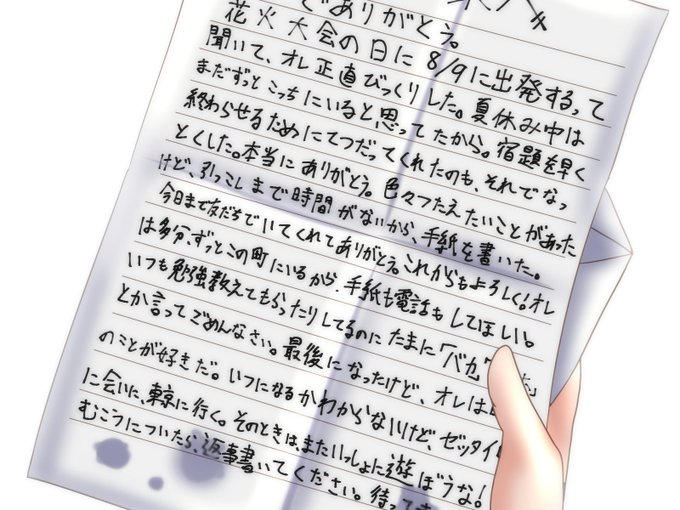 でありがとう。
花火大会の日に8/9に出発するって
聞いて、オレ正直びっくりした。夏休み中は
まだずっとこっちにいると思ってたから。宿題を早く
終わらせるためにてつだってくれたのも、それでなっ
とくした。本当にありがとう。色々つたえたいことがあった
けど、引っこしまで時間がないから、手紙を書いた。
今日まで友だちでいてくれてありがとう。これからもよろしく!オレ
は多分、ずっとこの町にいるから、手紙も電話もしてほしい。
いつも勉強教えてもらったりしてるのにたまに「バカ
とか言ってごめんなさい。最後になったけど、オレは
のことが好きだ。いつになるかわからないけど、ゼッタイ
に会いに、東京に行く。そのときは、またいっしょに遊ぼうな!
むこうについたら、返事書いてください。待って